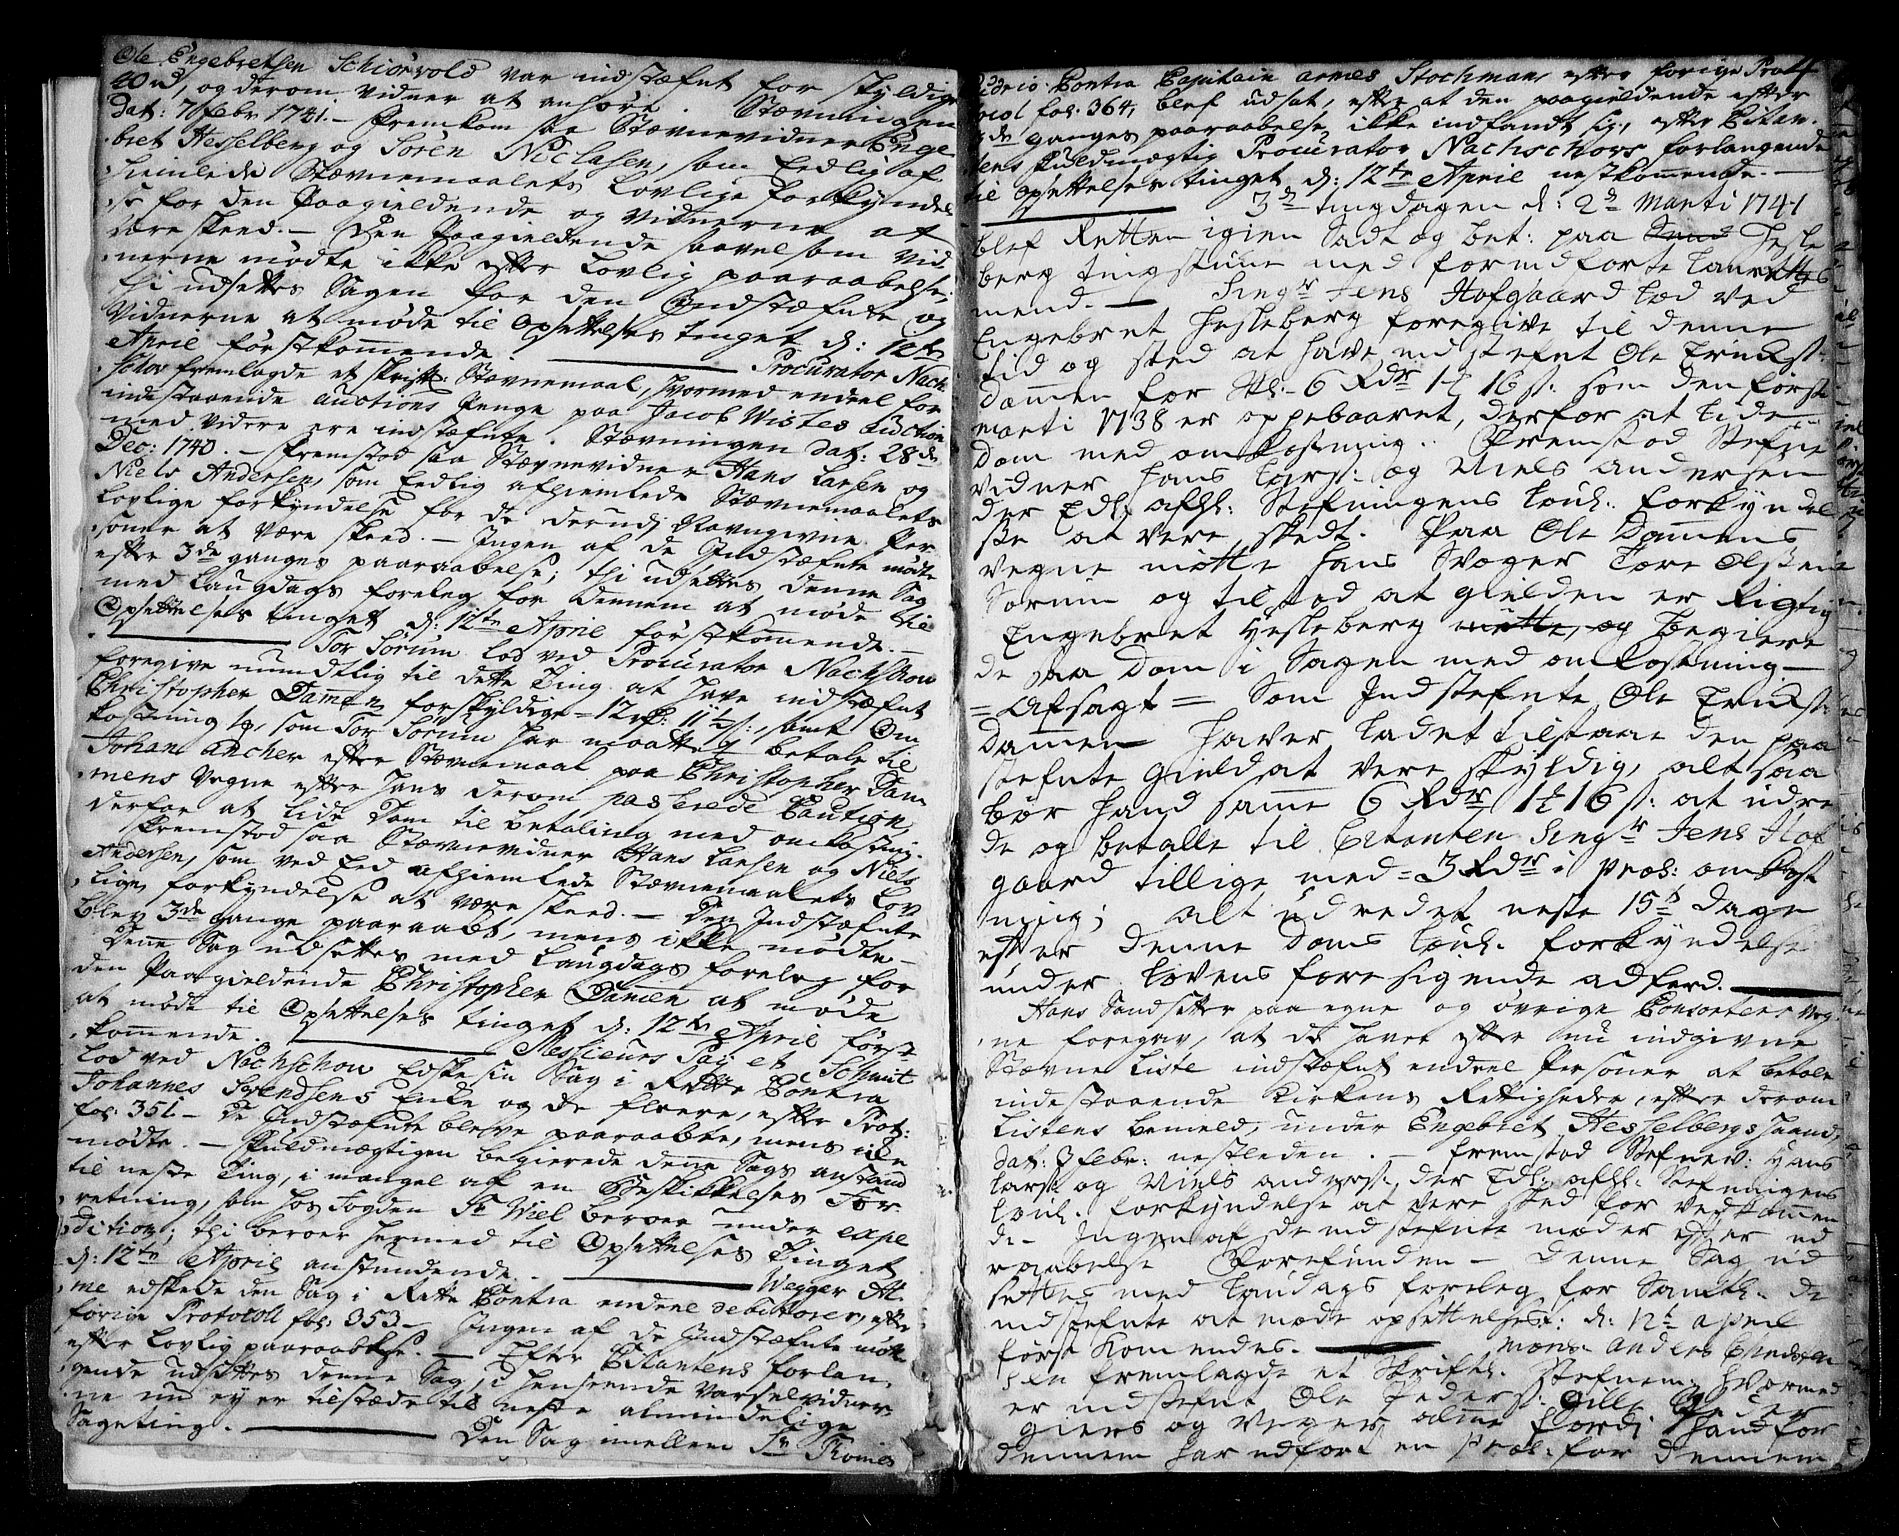 Ole Engebretsen Schiørvold var indstæfnt for skyldige
40 rd, og derom vidner at anhøre. Stævningen
dat: 7 Febr 1741. – Fremkom saa Stævnevidner Enge
bret Hesselberg og Søren Niclasen, som Eedlig af
hiemlede Stævnemaalets Lovlige forkyndel
se for den Paagieldende og vidnerne at
være skeed. – Den Paagieldende saavelsom vid
nerne mødte ikke efter Lovlig paaraabelse;
thi udsettes Sagen for den Indstæfnte og
Vidnerne at møde til Opsettelses tinget d: 12te
April førstkommende. — Procurator Nach
schov fremlagde et skriftl: Stævnemaal, hvormed endeel for
indestaaende Auctions Penge paa Jacob Wistes Auction
med videre ere indstæfnte. Stævningen dat: 28de
Dec: 1740. – Fremstod saa Stævnevidner Hans Larsen og
Niels Andersen, som Eedlig afhiemlede Stævnemaalets
Lovlige forkyndelse for de derudj Navngivne Per
soner at være skeed. – Ingen af de Indstæfnte mødte
efter 3de ganges paaraabelse; thi udsettes denne Sag
med Laugdags forelæg for dennem at møde til
Opsettelses tinget d: 12te April førstkommende. –
Tor Sørum lod ved Procurator Nachschow
foregive mundtlig til dette Ting at have indstæfnt
Christopher Dammen forskyldige 12 rd: 11 s:, samt Om
kostning , som Tor Sørum har maattet betale til
Johan Ancher efter Stævnemaal paa Christopher Dam
mens Vegne efter hans derom passerede Caution,
derfor at lide Dom til betaling med omkostning.
Fremstod saa Stævnevidner Hans Larsen og Niels
Andersen, som ved Eed afhiemlede Stævnemaalets Lov
lige forkyndelse at være skeed. – Den Indstæfnte
blev 3de gange paaraabt, mens ikke mødte –
Denne Sag udsettes med Laugdags forelæg for
den Paagieldende Christopher Dammen at møde
at møde til Opsettelses tinget d: 12te April først
kommende. — Messieurs Pay et Schmit
lod ved Nachschou Edske sin Sag i Rette Contra
Johannes Svendsens Enke og de fleere, efter Prot:
fol: 351 – De Indstæfnte bleve paaraabte, mens icke
mødte. – Fuldmægtigen begierede denne Sags anstand
til neste Ting, i mangel af en Beskikkelses For
retning, som hos Fogden Sr Wiel beroer under expe
dition; thi beroer hermed til Opsettelses Tinget
d: 12te April anstundende. — Wegger Al
me edskede den Sag i Rette Contra endeel debittorer, efter
forige Protocol fol: 353 – Ingen af de Indstæfnte mødte
efter Lovlig paaraabelse. – Efter Citantens forlan
gende udsettes denne Sag, i henseende Varselvidner
ne nu ey er tilstæde til neste almindelige
Sageting. — Den Sag imellem Sr Thomes
Contra Capitain Stochman, efter forige Prot
ocol fol: 364, blef udsat, efter at den paagieldende efter
3de ganges paaraabelse, ikke indfandt sig, efter Citan
tens fuldmægtig Procurator Nachschovs forlangende
til Opsettelses tinget d: 12te April nestkommende. –
3de tingdagen d: 2de Marti 1741
blef Retten igien Sadt og bet: paa Hesle
berg tingstuue med formdførte Laurettes
mend. — Singr Jens Hofgaard Lod ved
Engebret Hesleberg foregive til denne
tid og sted at have indstefnt Ole Erickst:
Dammen for 6 Rdr 16 s: som den første
marti 1738 er oppebaaret, derfor at lide
Dom med omkostning. Fremstod Stefne
vidner Hans Lars: og Niels Andersen
der Edl: afhl: Stefningens Louh: forkyndel
sse at vere skedt. Paa Ole Dammens
vegne møtte hans Svoger Tore Olssen
Sørum og tilstod at gielden er Rigtig
Engebret Hesleberg begiere
de saa Dom i Sagen med omkostning –
= Afsagt = Som Indstefnte Ole Erickst:
Dammen haver ladet tilstaae den paa
stefnte gield at vere skyldig, alt saa
bør hand samme 6 Rdr 16 s: at udre
de og betalle til Citanten Singr Jens Hof
gaard tillige med 3 Rdr i Proh: omkost
ning; alt udredet neste 15 dage
efter denne Doms Louh: forkyndelse
under Lovens foresigende adferd. —
Hans Sandsetter paa egne og øvrige Consorters veg
ne foregav, at de haver efter nu indgivne
Stævne Liste indstæfnt endeel Personer at betale
indestaaende Kirkens Rettigheder, efter derom
Listens bemeld, under Engebret Hesselbergs haand,
dat: 7 febr: nestleden. – fremstod Stefnev: Hans
Larst: og Niels Anderst:, der Edl: afhl: Stefningens
Louh: forkyndelse at vere sked for vedkommen
de – Ingen af de indstefnte møder efter ud
raabelse Forefunden – Denne Sag ud
settes med Laudags forelæg for Samtl: de
indstefnte at møde opsettelsest: d: 12te April
først komendes. — Mons: Anders
sen fremlagde et Skriftl: Stefnem: Hvormed
er indstefnt Ole Peders: Gille
giers og Veger alme fordi hand for
dennem har udført en Proh: for dennem